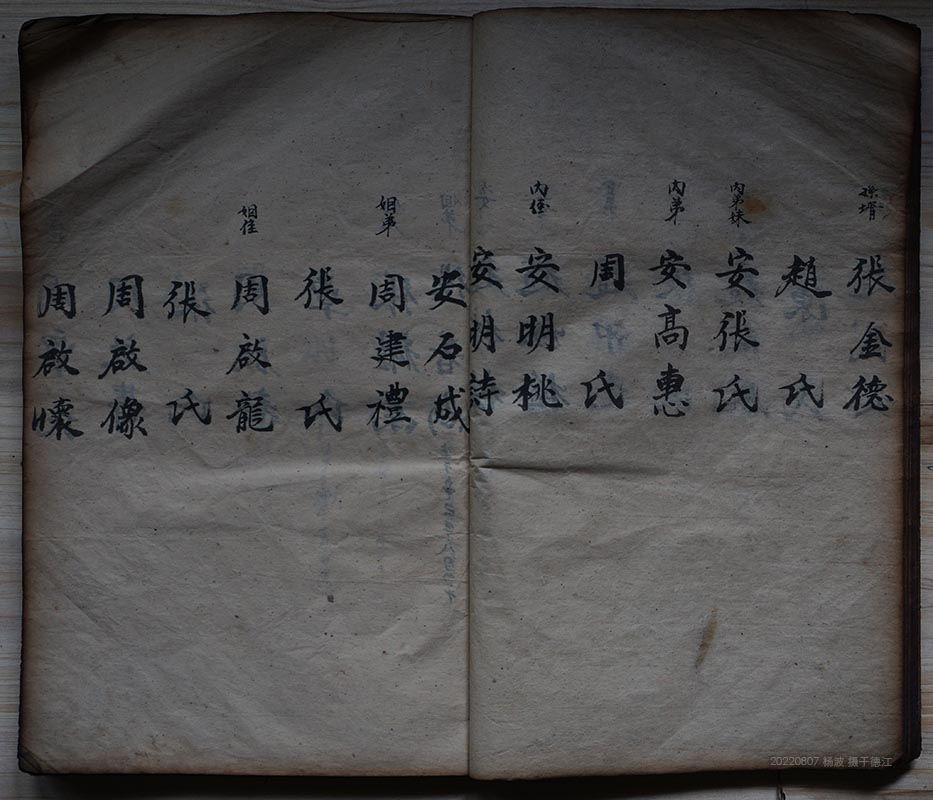 孫壻
張金德
趙氏
内弟妹
安張氏
内弟
安高惠
周氏
内侄
安明桃
安明詩
安石成
姻弟
周建禮
張氏
姻侄
周啟龍
張氏
周啟像
周啟懷
20220807 杨波 摄于德江